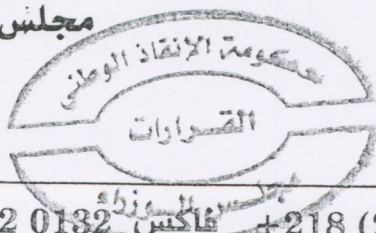 مجلس
حكومة الإنقاذ الوطني
القرارات
مجلس الوزراء
2 0132 فاكس +218 (2